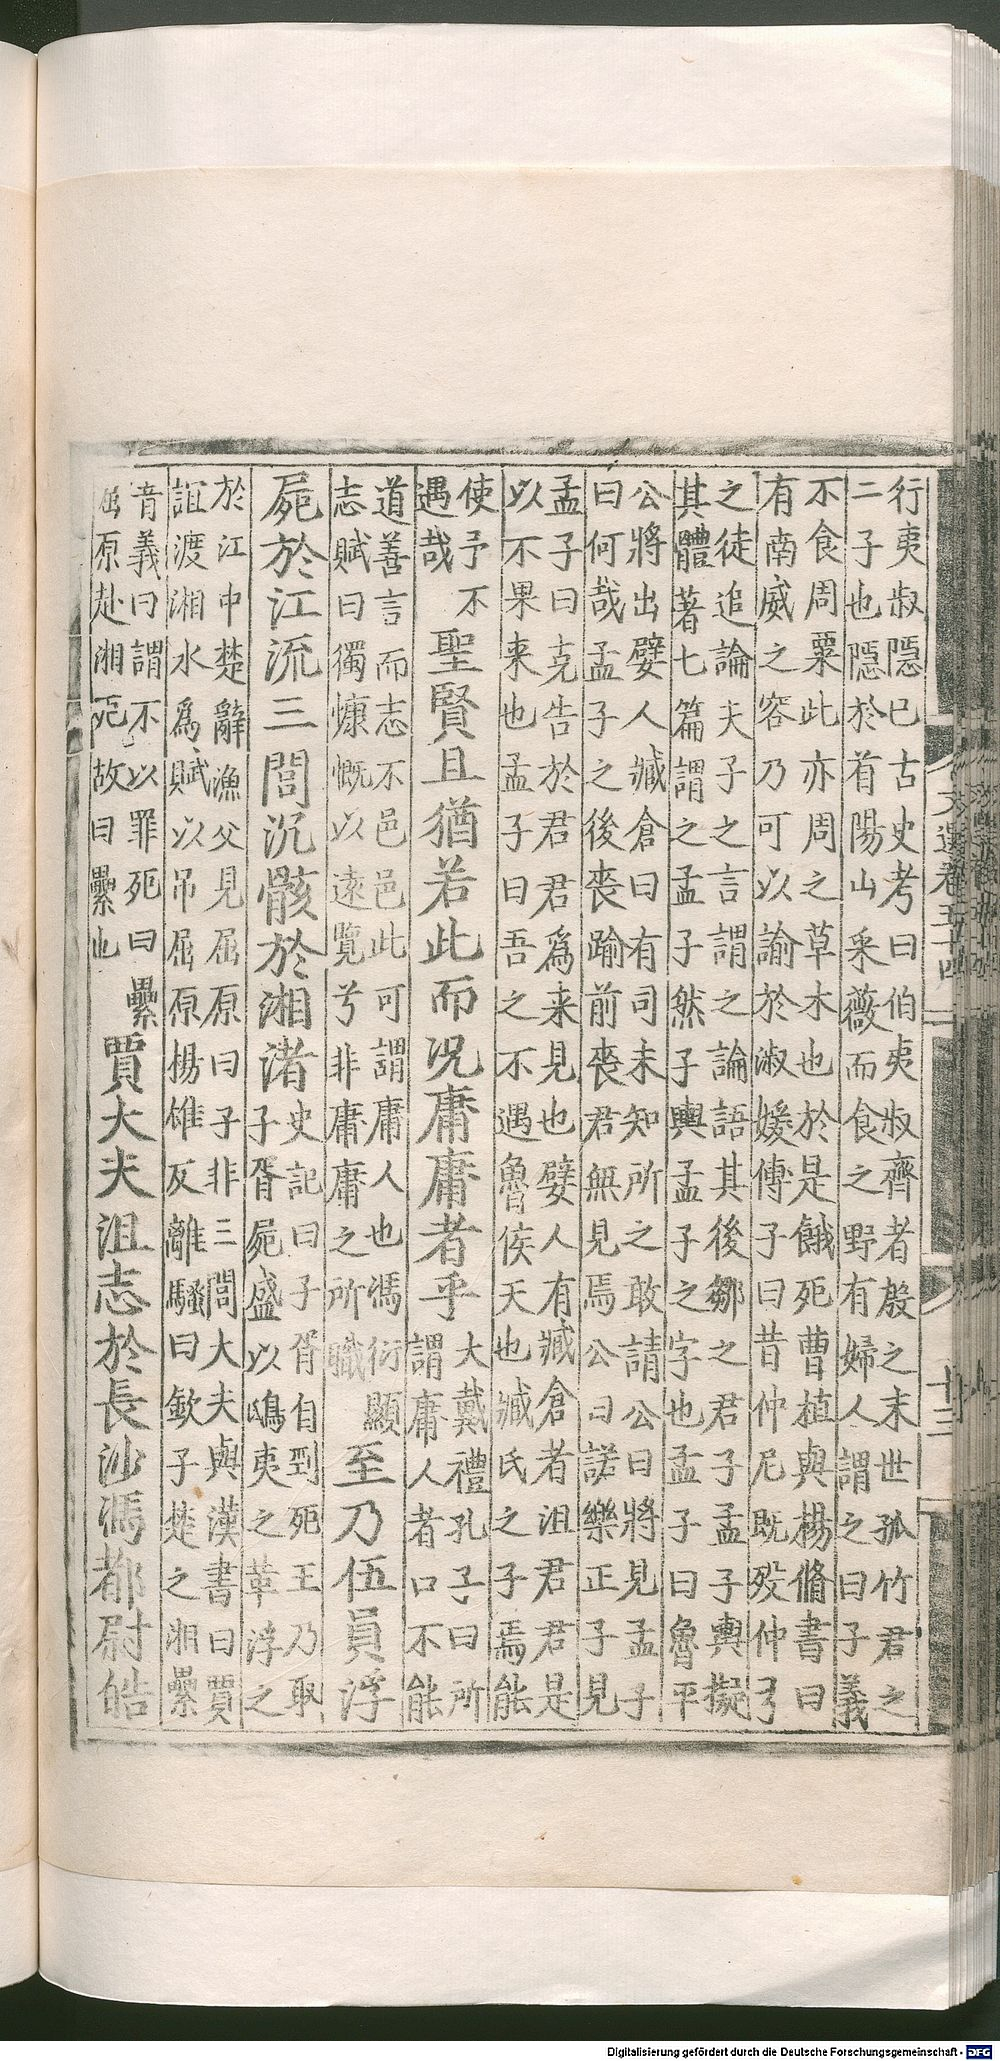 行夷叔隱已古史考曰伯夷叔齊者殷之末世孤竹君之
二子也隱於首陽山采薇而食之野有婦人謂之曰子義
不食周粟此亦周之草木也於是餓死曹植與楊脩書曰
有南威之容乃可以論於淑媛傅子曰昔仲尼既歿仲弓
之徒追論夫子之言謂之論語其後鄒之君子孟子輿擬
其體著七篇謂之孟子然子輿孟子之字也孟子曰魯平
公將出嬖人臧倉曰有司未知所之敢請公曰將見孟子
曰何哉孟子之後喪踰前喪君無見焉公曰諾樂正子見
孟子曰克告於君君為来見也嬖人有臧倉者沮君君是
以不果来也孟子曰吾之不遇魯侯天也臧氏之子焉能
使予不
遇哉
聖賢且猶若此而况庸庸者乎
大戴禮孔子曰所
謂庸人者口不能
道善言而志不邑邑此可謂庸人也馮衍顯
志賦曰獨慷慨以遠覽兮非庸庸之所識
至乃伍員浮
屍於江流三閭沉骸於湘渚
史記曰子胥自剄死王乃取
子胥屍盛以鴟夷之革浮之
於江中楚辭漁父見屈原曰子非三閭大夫與漢書曰賈
誼渡湘水爲賦以吊屈原揚雄反離騷曰欽子楚之湘纍
音義曰謂不以罪死曰纍
屈原赴湘死故曰纍也
賈大夫沮志於長沙馮都尉皓
文選卷五十四
十三
Digitalisierung gefördert durch die Deutsche Forschungsgemeinschaft - DFG